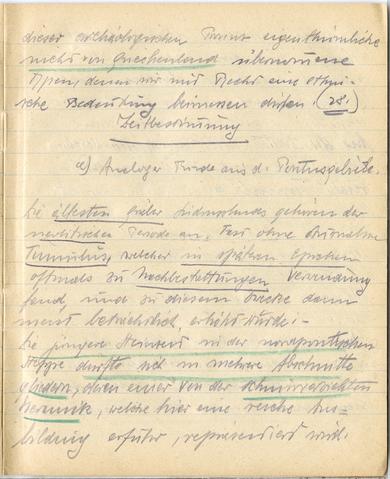 dieser archäologischen Fminx eigenthümliche
nicht von Griechenland übernommene
Typen, denen wir mit Recht eine ethni-
sche Bedeutung beimessen dürfen (28.)
Zeitbestimmung
a) Analoge Funde aus d. Pontusgebiete.
Die ältesten Gräber Südrusslands gehören der
neolitischen Periode an. Fast ohne Ausnahme
Tumulus, welcher in spätern Epochen
oftmals zu Nachbestattungen Verwendung
fand, und zu diesem Zwecke dann
meist beträchtlich erhöht wurde.-
Die jüngere Steinzeit in der nordpontischen
Steppe dürfte sich in mehrere Abschnitte
gliedern, deren einer von der schnurverzierten
Keramik, welche hier eine reiche Aus-
bildung erfuhr, repräsentiert wird.